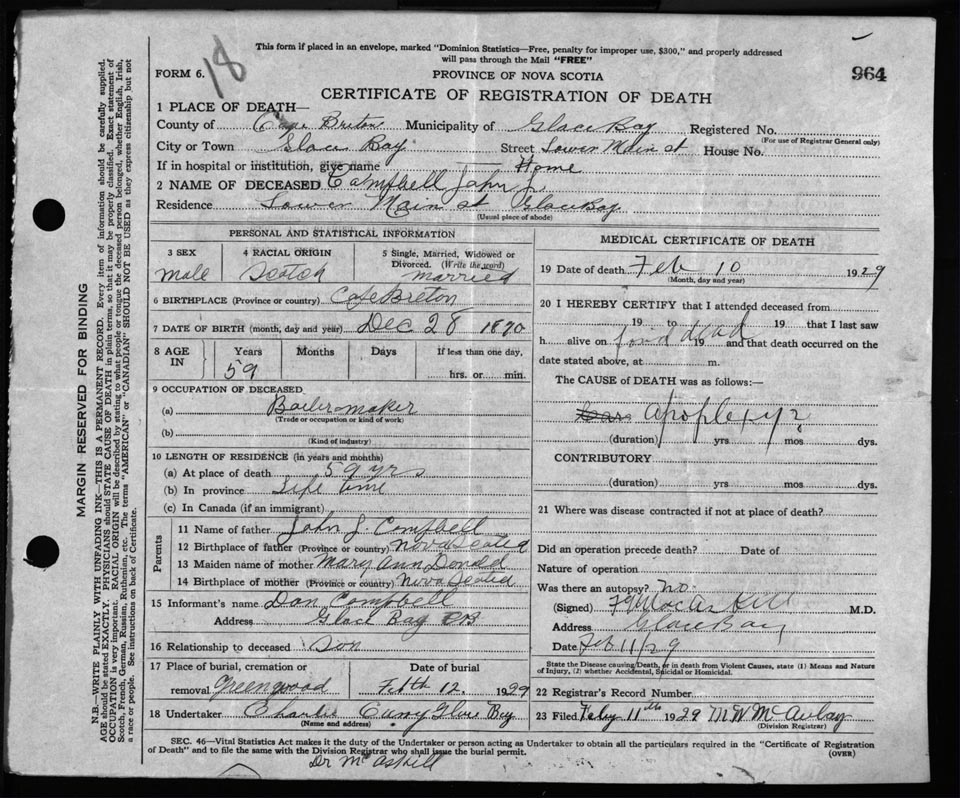 This form if placed in an envelope, marked "Dominion Statistics—Free, penalty for improper use, $300," and properly addressed
will pass through the Mail "FREE"
18
964
FORM 6.
PROVINCE OF NOVA SCOTIA
CERTIFICATE OF REGISTRATION OF DEATH
1 PLACE OF DEATH—
County of Cape Breton Municipality of Glace Bay Registered No.
(For use of Registrar General only)
City or Town Glace Bay Street Lower Main st House No.
If in hospital or institution, give name Home
2 NAME OF DECEASED Campbell John J.
Residence Lower Main st Glace Bay
(Usual place of abode)
PERSONAL AND STATISTICAL INFORMATION
3 SEX 4 RACIAL ORIGIN 5 Single, Married, Widowed or
Divorced. (Write the word)
male Scotch married
6 BIRTHPLACE (Province or country) Cape Breton
7 DATE OF BIRTH (month, day and year) Dec 28 1870
8 AGE IN Years Months Days If less than one day,
59 hrs. or min.
9 OCCUPATION OF DECEASED
(a) Boiler maker
(Trade or occupation or kind of work)
(b)
(Kind of industry)
10 LENGTH OF RESIDENCE (in years and months)
(a) At place of death 59 yrs
(b) In province Life time
(c) In Canada (if an immigrant)
Parents
11 Name of father John J. Campbell
12 Birthplace of father (Province or country) Nova Scotia
13 Maiden name of mother Mary Ann Donald
14 Birthplace of mother (Province or country) Nova Scotia
15 Informant's name Dan Campbell
Address Glace Bay CB
16 Relationship to deceased Son
17 Place of burial, cremation or Date of burial
removal Greenwood Febth 12. 1929
18 Undertaker Charlie Curry Glace Bay
(Name and address)
MEDICAL CERTIFICATE OF DEATH
19 Date of death Feb 10 1929
(Month, day and year)
20 I HEREBY CERTIFY that I attended deceased from
19 to 19 that I last saw
h alive on found dead 19 and that death occurred on the
date stated above, at m.
The CAUSE of DEATH was as follows:—
apoplexy?
(duration) yrs mos dys.
CONTRIBUTORY
(duration) yrs. mos. dys.
21 Where was disease contracted if not at place of death?
Did an operation precede death? Date of
Nature of operation
Was there an autopsy? no.
(Signed) MacAskill M.D.
Address Glace Bay
Date Feb 11/29
State the Disease causing Death, or in death from Violent Causes, state (1) Means and Nature
of Injury, (2) whether Accidental, Suicidal or Homicidal.
22 Registrar's Record Number
23 Filed Feby 11th 1929 M W McAulay
(Division Registrar)
SEC. 46—Vital Statistics Act makes it the duty of the Undertaker or person acting as Undertaker to obtain all the particulars required in the "Certificate of Registration
of Death" and to file the same with the Division Registrar who shall issue the burial permit.
(OVER)
Dr McAskill
MARGIN RESERVED FOR BINDING
N.B.—WRITE PLAINLY WITH UNFADING INK—THIS IS A PERMANENT RECORD. Every item of information should be carefully supplied.
AGE should be stated EXACTLY. PHYSICIANS should STATE CAUSE OF DEATH in plain terms, so that it may be properly classified. Exact statement of
OCCUPATION is very important. RACIAL ORIGIN will be described by stating to what people or tongue the deceased person belonged, whether English, Irish,
Scotch, French, German, Russian, Ruthenian, etc. The terms "AMERICAN" or "CANADIAN" SHOULD NOT BE USED as they express citizenship but not
a race or people. See instructions on back of Certificate.